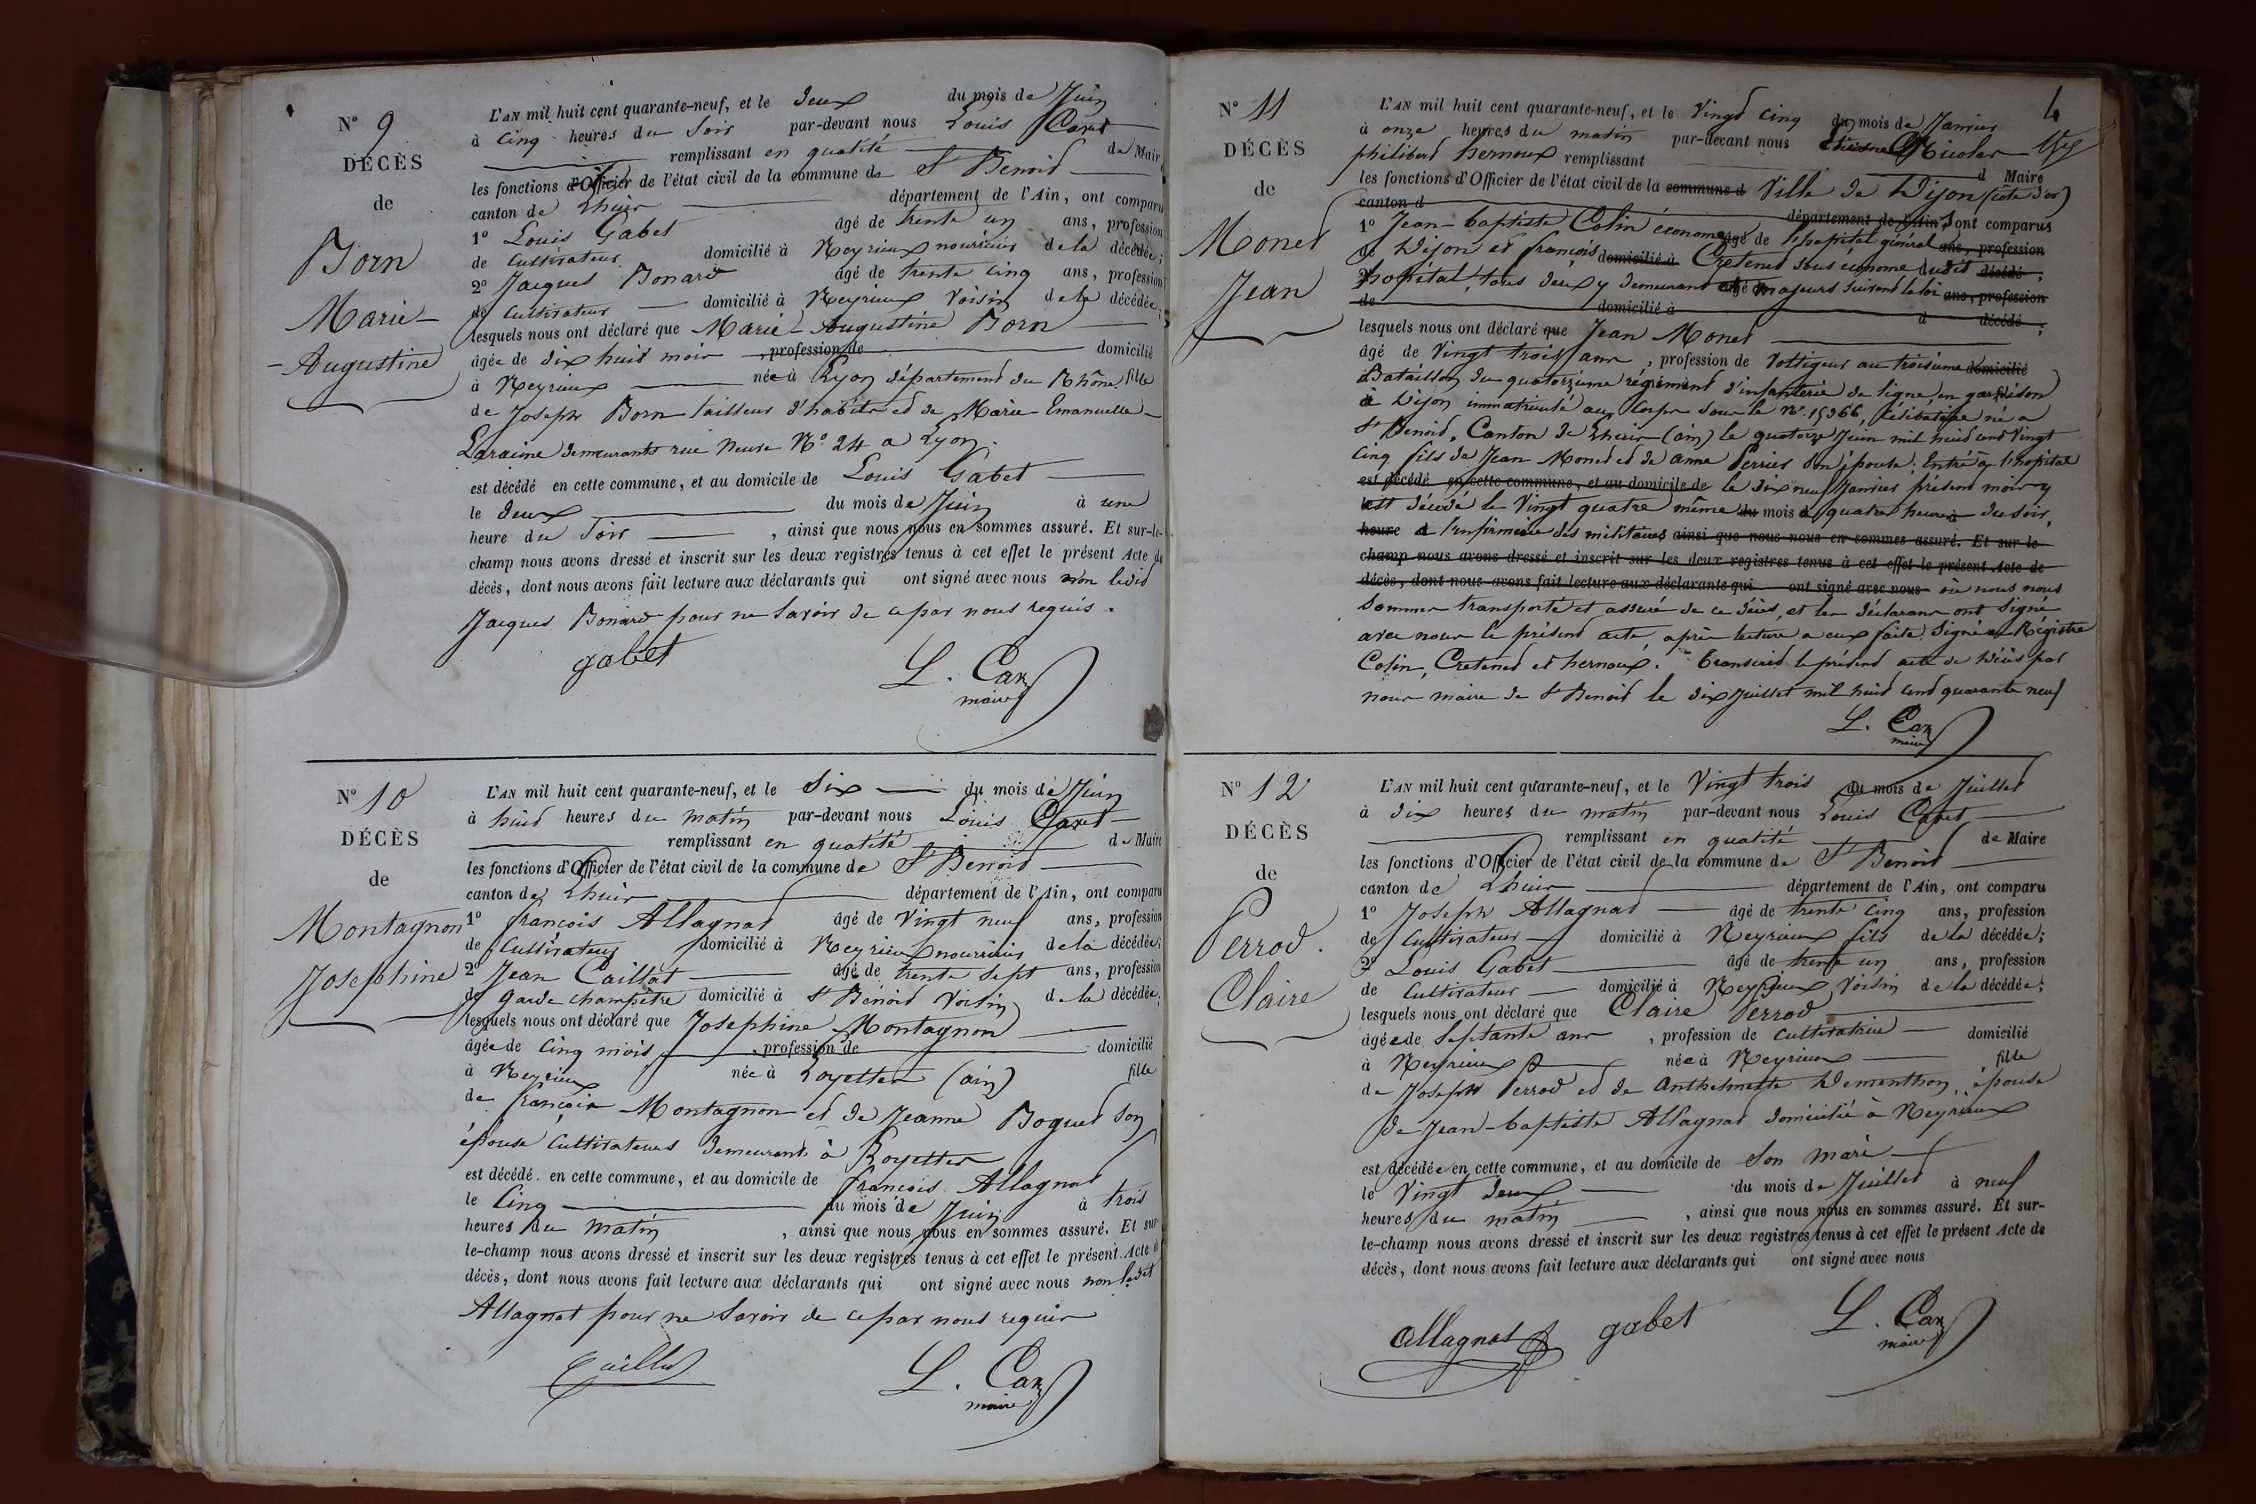 N° 9
DÉCÈS
de
Born
Marie-
-Augustine
L'AN mil huit cent quarante-neuf, et le deux du mois de Juin
à cinq heures du soir par-devant nous Louis Caret
remplissant en qualité de Maire
les fonctions d'Officier de l'état civil de la commune de St Benoid
canton de Lhuis département de l'Ain, ont comparu
1° Louis Gabet âgé de trente un ans, profession
de cultivateur domicilié à Neyrieux nourricier de la décédée;
2° Jacques Bonard âgé de trente cinq ans, profession
de cultivateur domicilié à Neyrieux voisin de la décédée;
lesquels nous ont déclaré que Marie-Augustine Born
âgée de dix huit mois , profession de domicilié
à Neyrieux née à Lyon département du Rhône, fille
de Joseph Born tailleur d'habits et de Marie-Emanuelle-
Laraine demeurants rue Neuve N° 24 a Lyon.
est décédé en cette commune, et au domicile de Louis Gabet
le deux du mois de Juin à une
heure du soir , ainsi que nous nous en sommes assuré. Et sur-le-
champ nous avons dressé et inscrit sur les deux registres tenus à cet effet le présent Acte de
décès, dont nous avons fait lecture aux déclarants qui ont signé avec nous non ledid
Jacques Bonard pour ne savoir de ce par nous requis.
gabet L. Car
maire
N° 10
DÉCÈS
de
Montagnon
Josephine
L'AN mil huit cent quarante-neuf, et le six du mois de Juin
à huid heures du matin par-devant nous Louis Caret
remplissant en qualité de Maire
les fonctions d'Officier de l'état civil de la commune de St Benoid
canton de Lhuis département de l'Ain, ont comparu
1° françois Allagnat âgé de vingt neuf ans, profession
de cultivateur domicilié à Neyrieux nourricier de la décédée;
2° Jean Caillat âgé de trente sept ans, profession
de garde champêtre domicilié à St Benoid voisin de la décédée;
lesquels nous ont déclaré que Josephine Montagnon
âgée de cinq mois , profession de domicilié
à Neyrieu née à Loyettes (ain) fille
de françois Montagnon et de Jeanne Boqued son
épouse cultivateurs demeurant à Loyettes
est décédé en cette commune, et au domicile de françois Allagnat
le cinq du mois de Juin à trois
heures du matin , ainsi que nous nous en sommes assuré. Et sur
le-champ nous avons dressé et inscrit sur les deux registres tenus à cet effet le présent Acte de
décès, dont nous avons fait lecture aux déclarants qui ont signé avec nous non ledit
Allagnat pour ne savoir de ce par nous requis
Caillat L. Car
maire
4
N° 11
DÉCÈS
de
Moned
Jean
L'AN mil huit cent quarante-neuf, et le vingt cinq du mois de Janvier
à onze heures du matin par-devant nous Etienne Nicolas
philiberd hernoux remplissant d Maire
les fonctions d'Officier de l'état civil de la commune d Ville de Dijon (côte d'or)
canton d département de l'Ain, ont comparus
1° Jean-baptiste Colin économe âgé de l'hopital général ans, profession
de Dijon et françois domicilié à Cretened sous économe dudit décédé;
2° hopital, tous deux y demeurant âgé majeurs suivant la loi ans, profession
de domicilié à d décédé;
lesquels nous ont déclaré que Jean Moned
âgé de vingt trois ans , profession de voltigeur au troisieme domicilié
Bataillon du quatorzieme régiment d'infanterie de ligne, en garnison
à Dijon immatriculé aux corps sous le N° 15366, célibataire né a
St Benoid, Canton de Lhuis (ain) le quatorze Juin mil huid cend vingt
cinq fils de Jean Moned et de anne Perrier son épouse: Entré à l'hopital
est décédé en cette commune, et au domicile de le dix neuf Janvier présend mois y
est décédé le vingt quatre même du mois à quatre heures à du soir,
heure à l'infirmerie des militaires ainsi que nous nous en sommes assuré. Et sur le
champ nous avons dressé et inscrit sur les deux registres tenus à cet effet le présent Acte de
décès, dont nous avons fait lecture aux déclarants qui ont signé avec nous où nous nous
sommes transporté et assuré de ce décès, et les déclarans ont signé
avec nous le présend acte après lecture a eux faite. Signé au Régistre
Colin, Cretened et hernoux. Transcrid le présend acte de décès par
nous maire de St Benoid le dix Juillet mil huid cend quarante neuf
L. Car
maire
N° 12
DÉCÈS
de
Perrod.
Claire
L'AN mil huit cent quarante-neuf, et le vingt trois du mois de Juilled
à dix heures du matin par-devant nous Louis Caret
remplissant en qualité de Maire
les fonctions d'Officier de l'état civil de la commune de St Benoid
canton de Lhuis département de l'Ain, ont comparu
1° Joseph Allagnat âgé de trente cinq ans, profession
de cultivateur domicilié à Neyrieux fils de la décédée;
2° Louis Gabet âgé de trente un ans, profession
de cultivateur domicilié à Neyrieux voisin de la décédée;
lesquels nous ont déclaré que Claire Perrod
âgée de septante ans , profession de cultivatrice domicilié
à Neyrieux née à Neyrieux fille
de Joseph Perrod et de Anthelmette Dementhon, épouse
de Jean-baptiste Allagnat domicilié à Neyrieux
est décédée en cette commune, et au domicile de son mari
le vingt deux du mois de Juilled à neuf
heures du matin , ainsi que nous nous en sommes assuré. Et sur-
le-champ nous avons dressé et inscrit sur les deux registres tenus à cet effet le présent Acte de
décès, dont nous avons fait lecture aux déclarants qui ont signé avec nous
allagnat gabet L. Car
maire